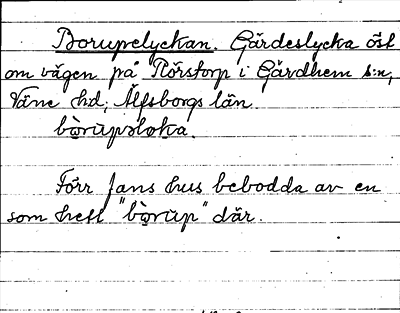 Borupelyckan. Gärdeslycka öst
om vägen på Rörstorp i Gärdhem s:n,
Väne hd, Älfsborgs län.
bòrupsloka.
Förr fans hus bebodda av en
som hett "bòrup" där.